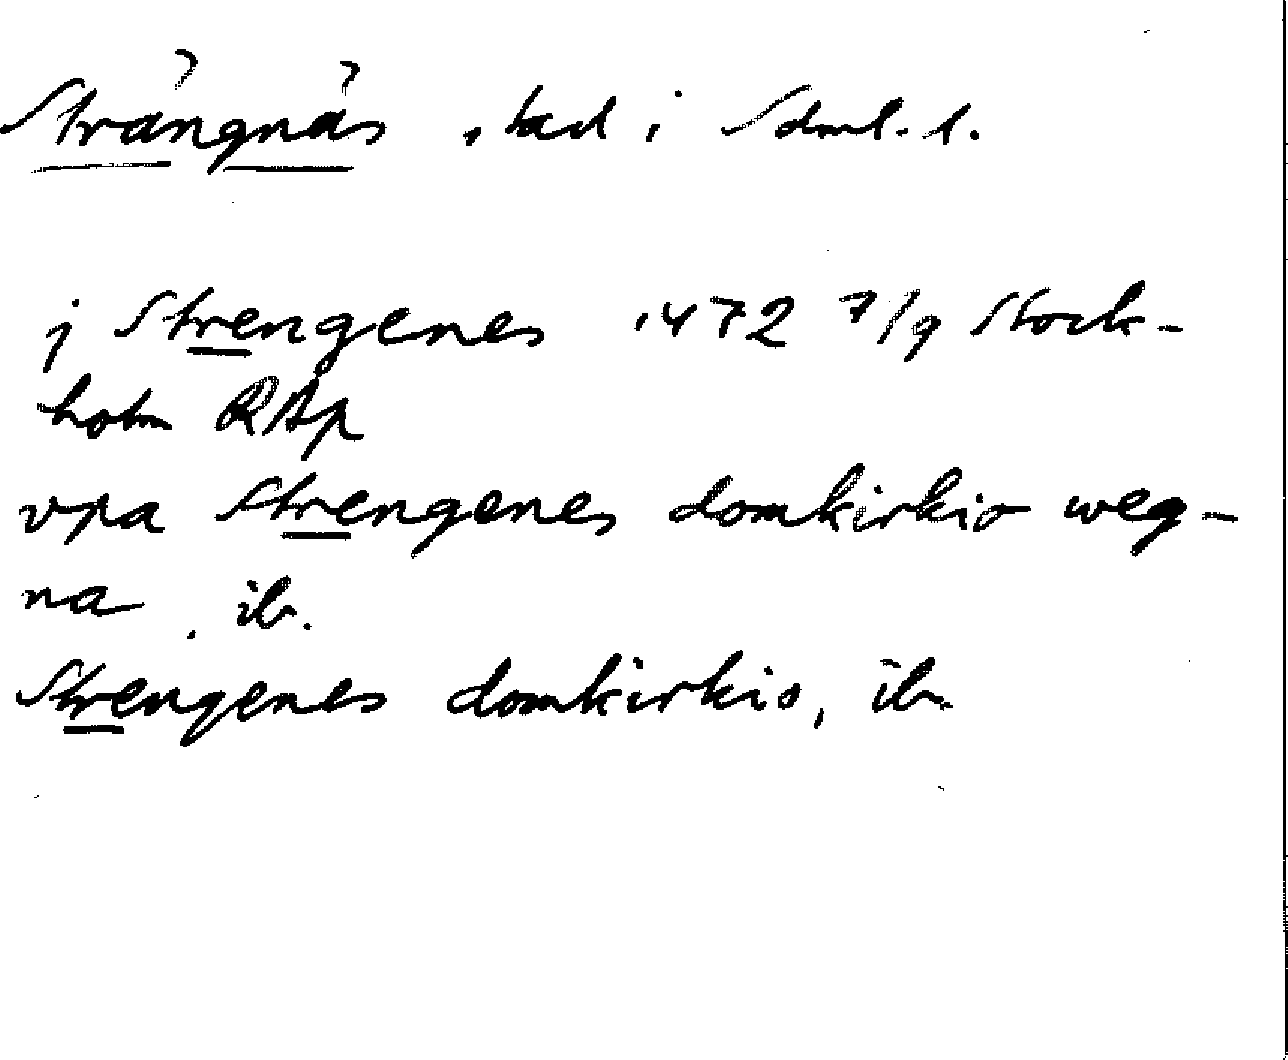 Strängnäs stad i Sdml. l.
j Strengenes 1472 7/9 Stock-
holm RAp
vpa Strengenes domkirkio weg-
na . ib.
Strengenes domkirkio, ib.